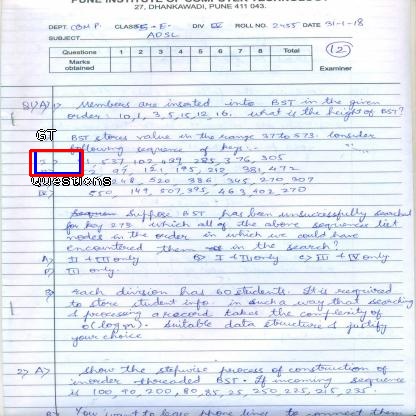 PUNE INSTITUTE OF COMPUTER TECHNOLOGY
27, DHANKAWADI, PUNE 411 043.
DEPT. COMP. CLASS S.E. DIV IV ROLL NO. 2455 DATE 31-1-18
SUBJECT ADSL
Questions 1 2 3 4 5 6 7 8 Total
Marks obtained
12
Examiner
Q1) A) Members are inserted into BST in the given
order: 10, 1, 3, 5, 15, 12, 16. what is the height of BST?
GT
BST stores value in the range 37 to 573. Consider
following sequence of keys:-
1, 537, 102, 439, 285, 376, 305
97, 121, 195, 212, 381, 472
Questions
248, 520, 386, 345, 270, 307
550, 149, 507, 395, 463, 402, 270
Suppose BST has been unsuccessfully searched
for key 273. which all of the above sequences list
nodes in the order in which we could have
encountered them in the search?
A) II + III only B) I + III only C) III + IV only
D) III only.
B) Each division has 60 students. It is required
to store student info. in such a way that searching
& processing a record takes the complexity of
O(log n). Suitable data structure & justify
your choice
2) A) show the stepwise process of construction of
inorder threaded BST. If incoming sequence
is 100, 40, 200, 80, 85, 25, 250, 225, 215, 235.
B) You want to lease phone lines to connect them